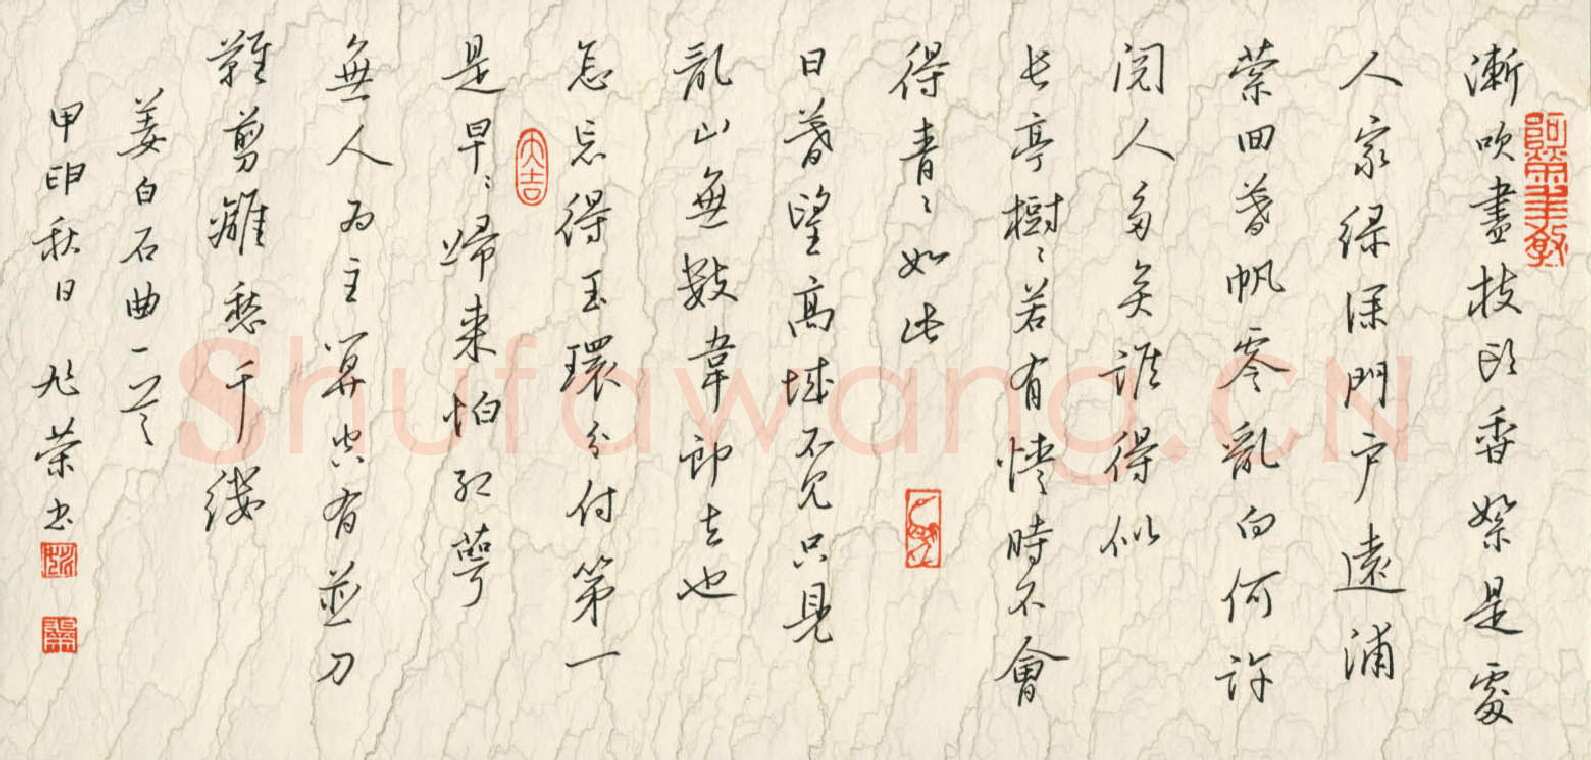 漸吹盡枝頭香絮是處
人家綠深門戶遠浦
縈回暮帆零亂向何許
閱人多矣誰得似
長亭樹〻若有情時不會
得青〻如此
日暮望高城不見只見
亂山無數韋郎去也
怎忘得玉環分付第一
是早〻歸來怕紅萼
無人為主算空有並刀
難剪離愁千縷
姜白石曲一首
甲申秋日 榮書
大吉
Shufawang.CN